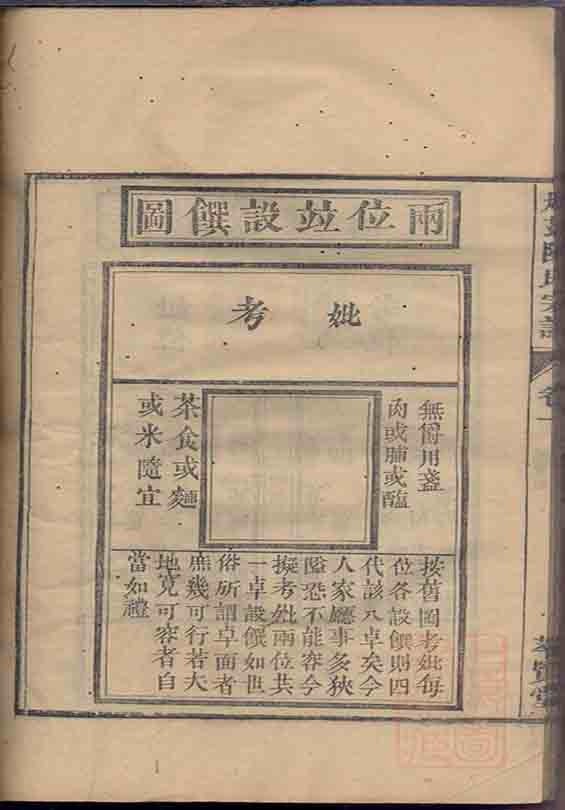 兩位竝設饌圖
妣
考
無爵用盞
肉或脯或醢
茶食或麵
或米隨宜
按舊圖考妣每
位各設饌則四
代該八卓矣今
人家廳事多狹
隘恐不能容今
擬考妣兩位共
一卓設饌如世
俗所謂卓面者
庶幾可行若夫
地寬可容者自
當如禮
陳氏宗譜
卷一